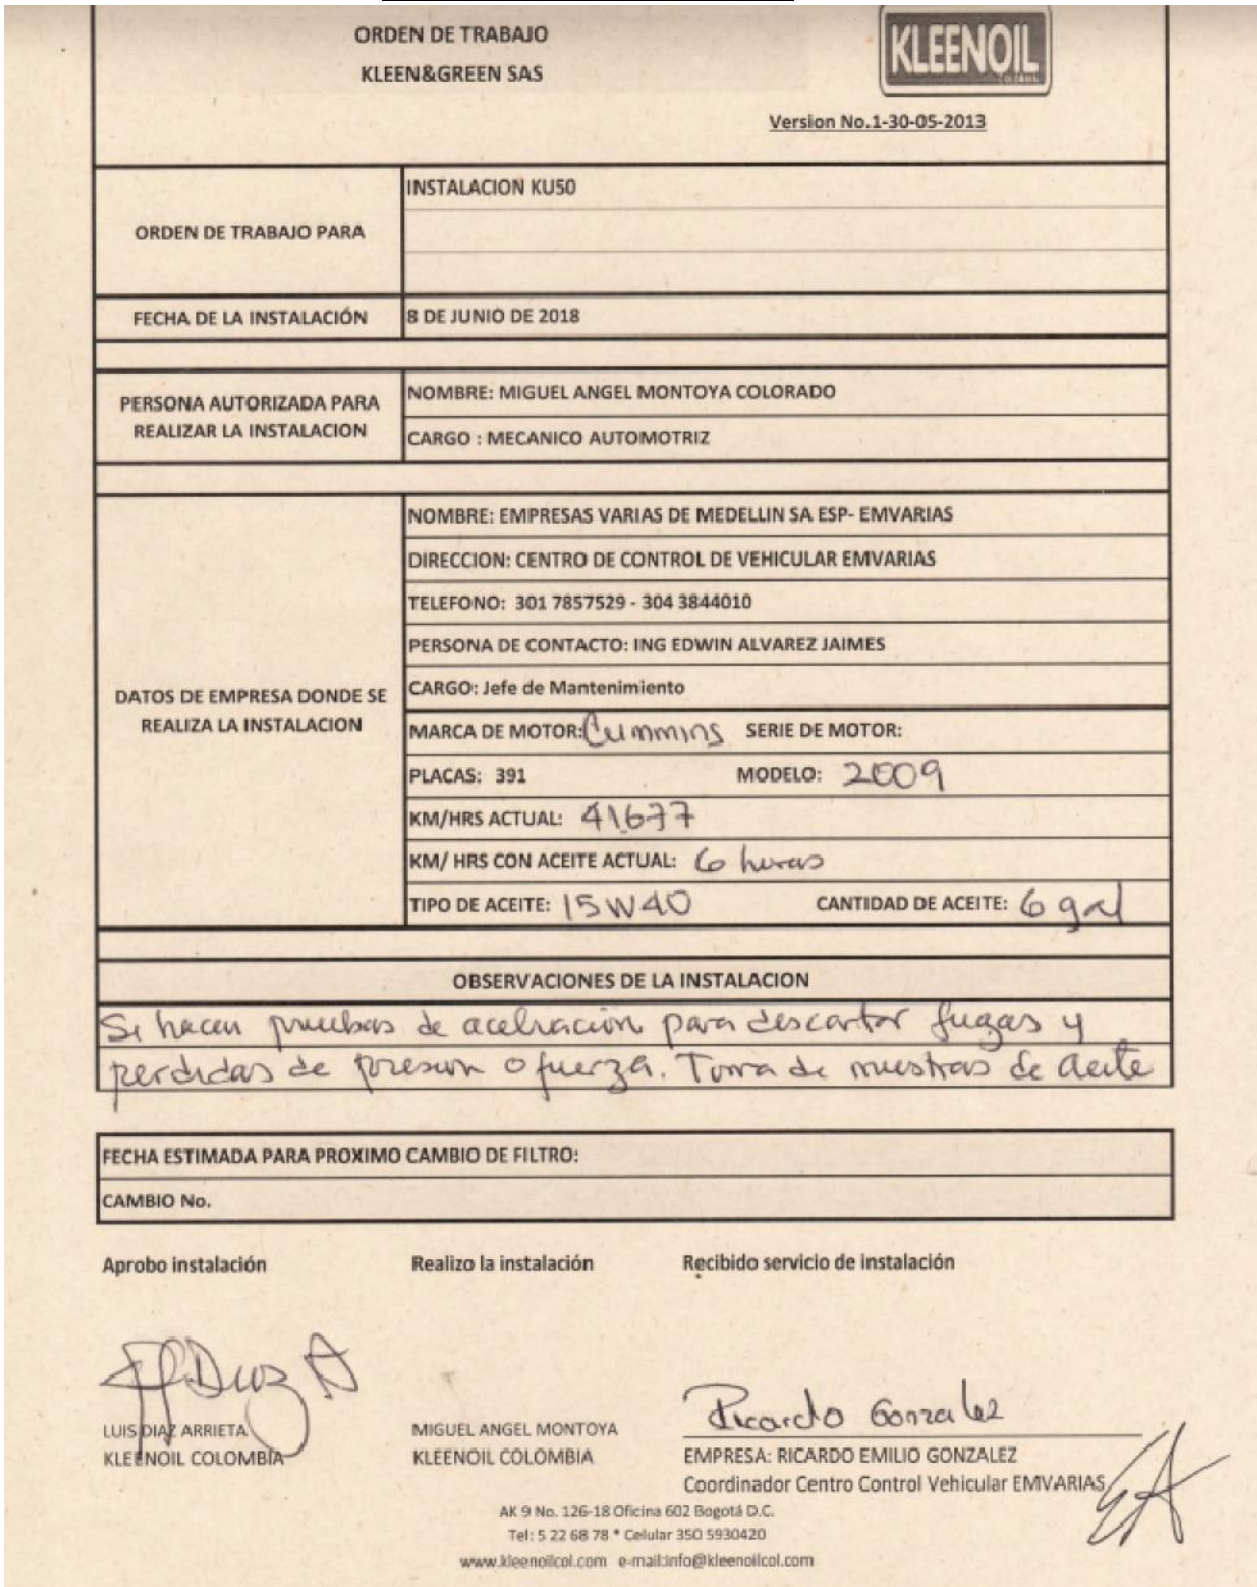 ORDEN DE TRABAJO
KLEEN&GREEN SAS
KLEENOIL
Version No.1-30-05-2013
ORDEN DE TRABAJO PARA
INSTALACION KU50
FECHA DE LA INSTALACIÓN
8 DE JUNIO DE 2018
PERSONA AUTORIZADA PARA
REALIZAR LA INSTALACION
NOMBRE: MIGUEL ANGEL MONTOYA COLORADO
CARGO : MECANICO AUTOMOTRIZ
DATOS DE EMPRESA DONDE SE
REALIZA LA INSTALACION
NOMBRE: EMPRESAS VARIAS DE MEDELLIN SA ESP- EMVARIAS
DIRECCION: CENTRO DE CONTROL DE VEHICULAR EMVARIAS
TELEFONO: 301 7857529 - 304 3844010
PERSONA DE CONTACTO: ING EDWIN ALVAREZ JAIMES
CARGO: Jefe de Mantenimiento
MARCA DE MOTOR: Cummins SERIE DE MOTOR:
PLACAS: 391 MODELO: 2009
KM/HRS ACTUAL: 41677
KM/ HRS CON ACEITE ACTUAL: 6 horas
TIPO DE ACEITE: 15W40 CANTIDAD DE ACEITE: 6 gal
OBSERVACIONES DE LA INSTALACION
Se hacen pruebas de acelracion para descartar fugas y
perdidas de presion o fuerza. Toma de muestras de aceite
FECHA ESTIMADA PARA PROXIMO CAMBIO DE FILTRO:
CAMBIO No.
Aprobo instalación Realizo la instalación Recibido servicio de instalación
Diaz A
Ricardo Gonzalez
LUIS DIAZ ARRIETA
KLEENOIL COLOMBIA
MIGUEL ANGEL MONTOYA
KLEENOIL COLOMBIA
EMPRESA: RICARDO EMILIO GONZALEZ
Coordinador Centro Control Vehicular EMVARIAS
AK 9 No. 126-18 Oficina 602 Bogotá D.C.
Tel: 5 22 68 78 * Celular 350 5930420
www.kleenoilcol.com e-mail:info@kleenoilcol.com